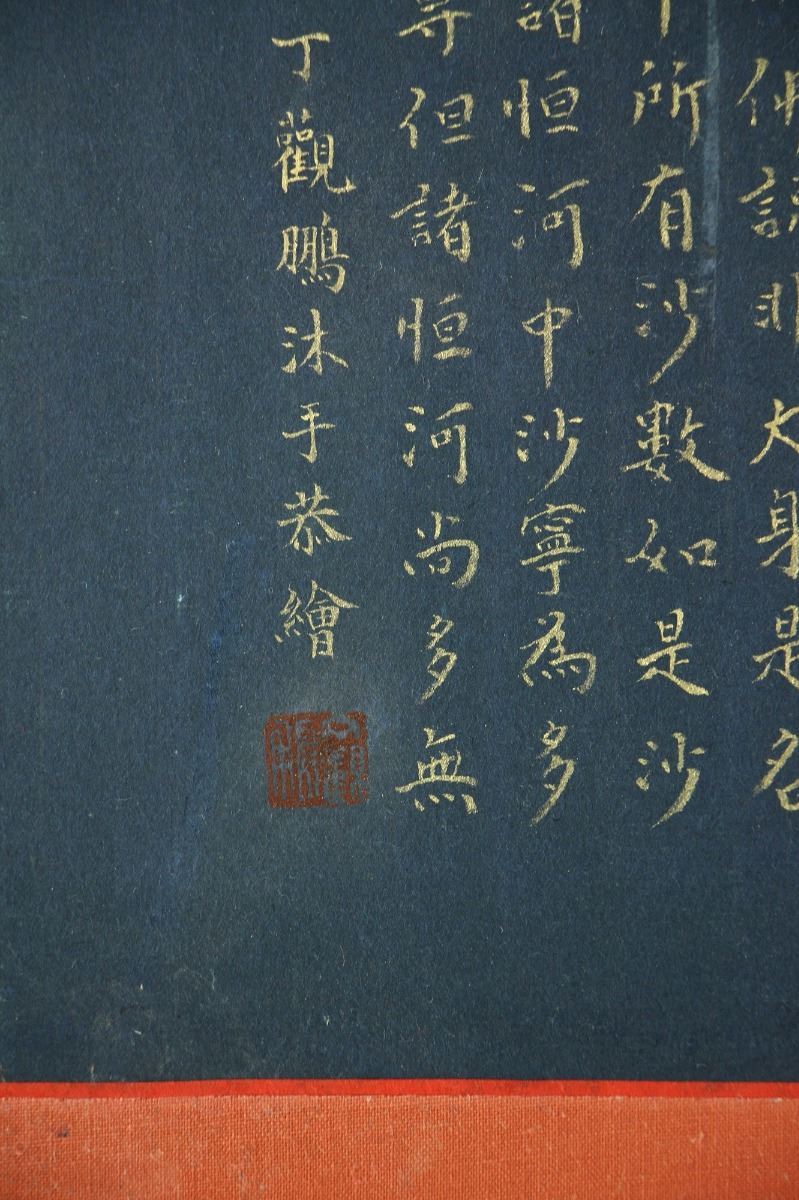 佛說非大身是名
所有沙數如是沙
諸恒河中沙寧為多
等但諸恒河尚多無
丁觀鵬沐手恭繪